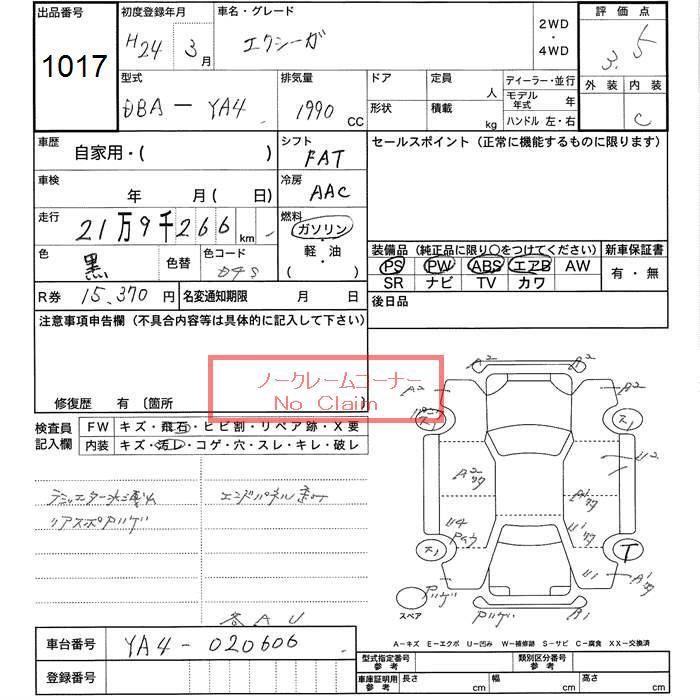 出品番号 初度登録年月 車名・グレード 2WD・4WD 評価点
1017 H24年3月 エクシーガ 3.5
型式 排気量 ドア 定員 人 ディーラー・並行 外装 内装
DBA-YA4 1990 CC 形状 積載 kg モデル年式 年 C
ハンドル 左・右
車歴 自家用・( ) シフト FAT セールスポイント（正常に機能するものに限ります）
車検 年 月( 日) 冷房 AAC
走行 21万9千266 km 燃料 ガソリン・軽・油 ( )
色 黒 色替 色コード D4S
装備品（純正品に限り○をつけてください） 新車保証書
PS PW ABS エアB AW 有・無
SR ナビ TV カワ
R券 15,370円 名変通知期限 月 日 後日品
注意事項申告欄（不具合内容等は具体的に記入して下さい）
ノークレームコーナー
No Claim
修復歴 有 〔箇所 〕
検査員記入欄 FW キズ・飛石・ヒビ割・リペア跡・X要
内装 キズ・汚レ・コゲ・穴・スレ・キレ・破レ
リアスポハゲ
各AU
A2 A2
A2 A2
ス1 ス1
U2
A2
U4 U1
ス1 T
U1 A1
ハゲ ハゲ B1
スペア
A－キズ E－エクボ U－凹み W－補修跡 S－サビ C－腐食 XX－交換済
車台番号 YA4-020606
登録番号
型式指定番号 参考 類別区分番号 参考
車庫証明用 参考 長さ cm 幅 cm 高さ cm